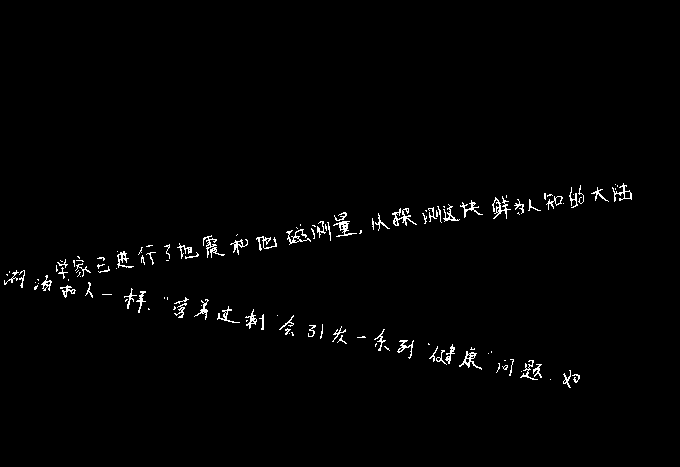 学家已进行了地震和地磁测量,从探测这块鲜为人知的大陆
湖泊和人一样,“营养过剩”会引发一系列“健康”问题,如